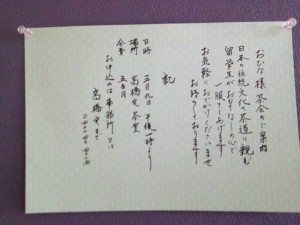 おひな様茶会のご案内
日本の伝統文化の茶道に親む
留学生がおもてなしの心で
一服してあげます
お気軽におでかけくださいませ
お待ちしております
記
日時 三月九日 午後一時より
場所 高橋 茶室
会費 五百円
お申込みは事務所では
高橋 まで